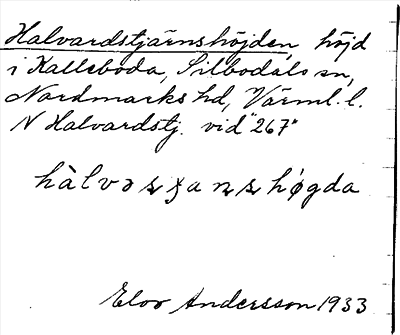 Halvardstjärnshöjden, höjd
i Kalleboda, Silbodals sn,
Nordmarks hd, Värml. l.
N Halvardstj. vid "267"
hàlvəsʂanʂhǿgda
Elov Andersson 1933